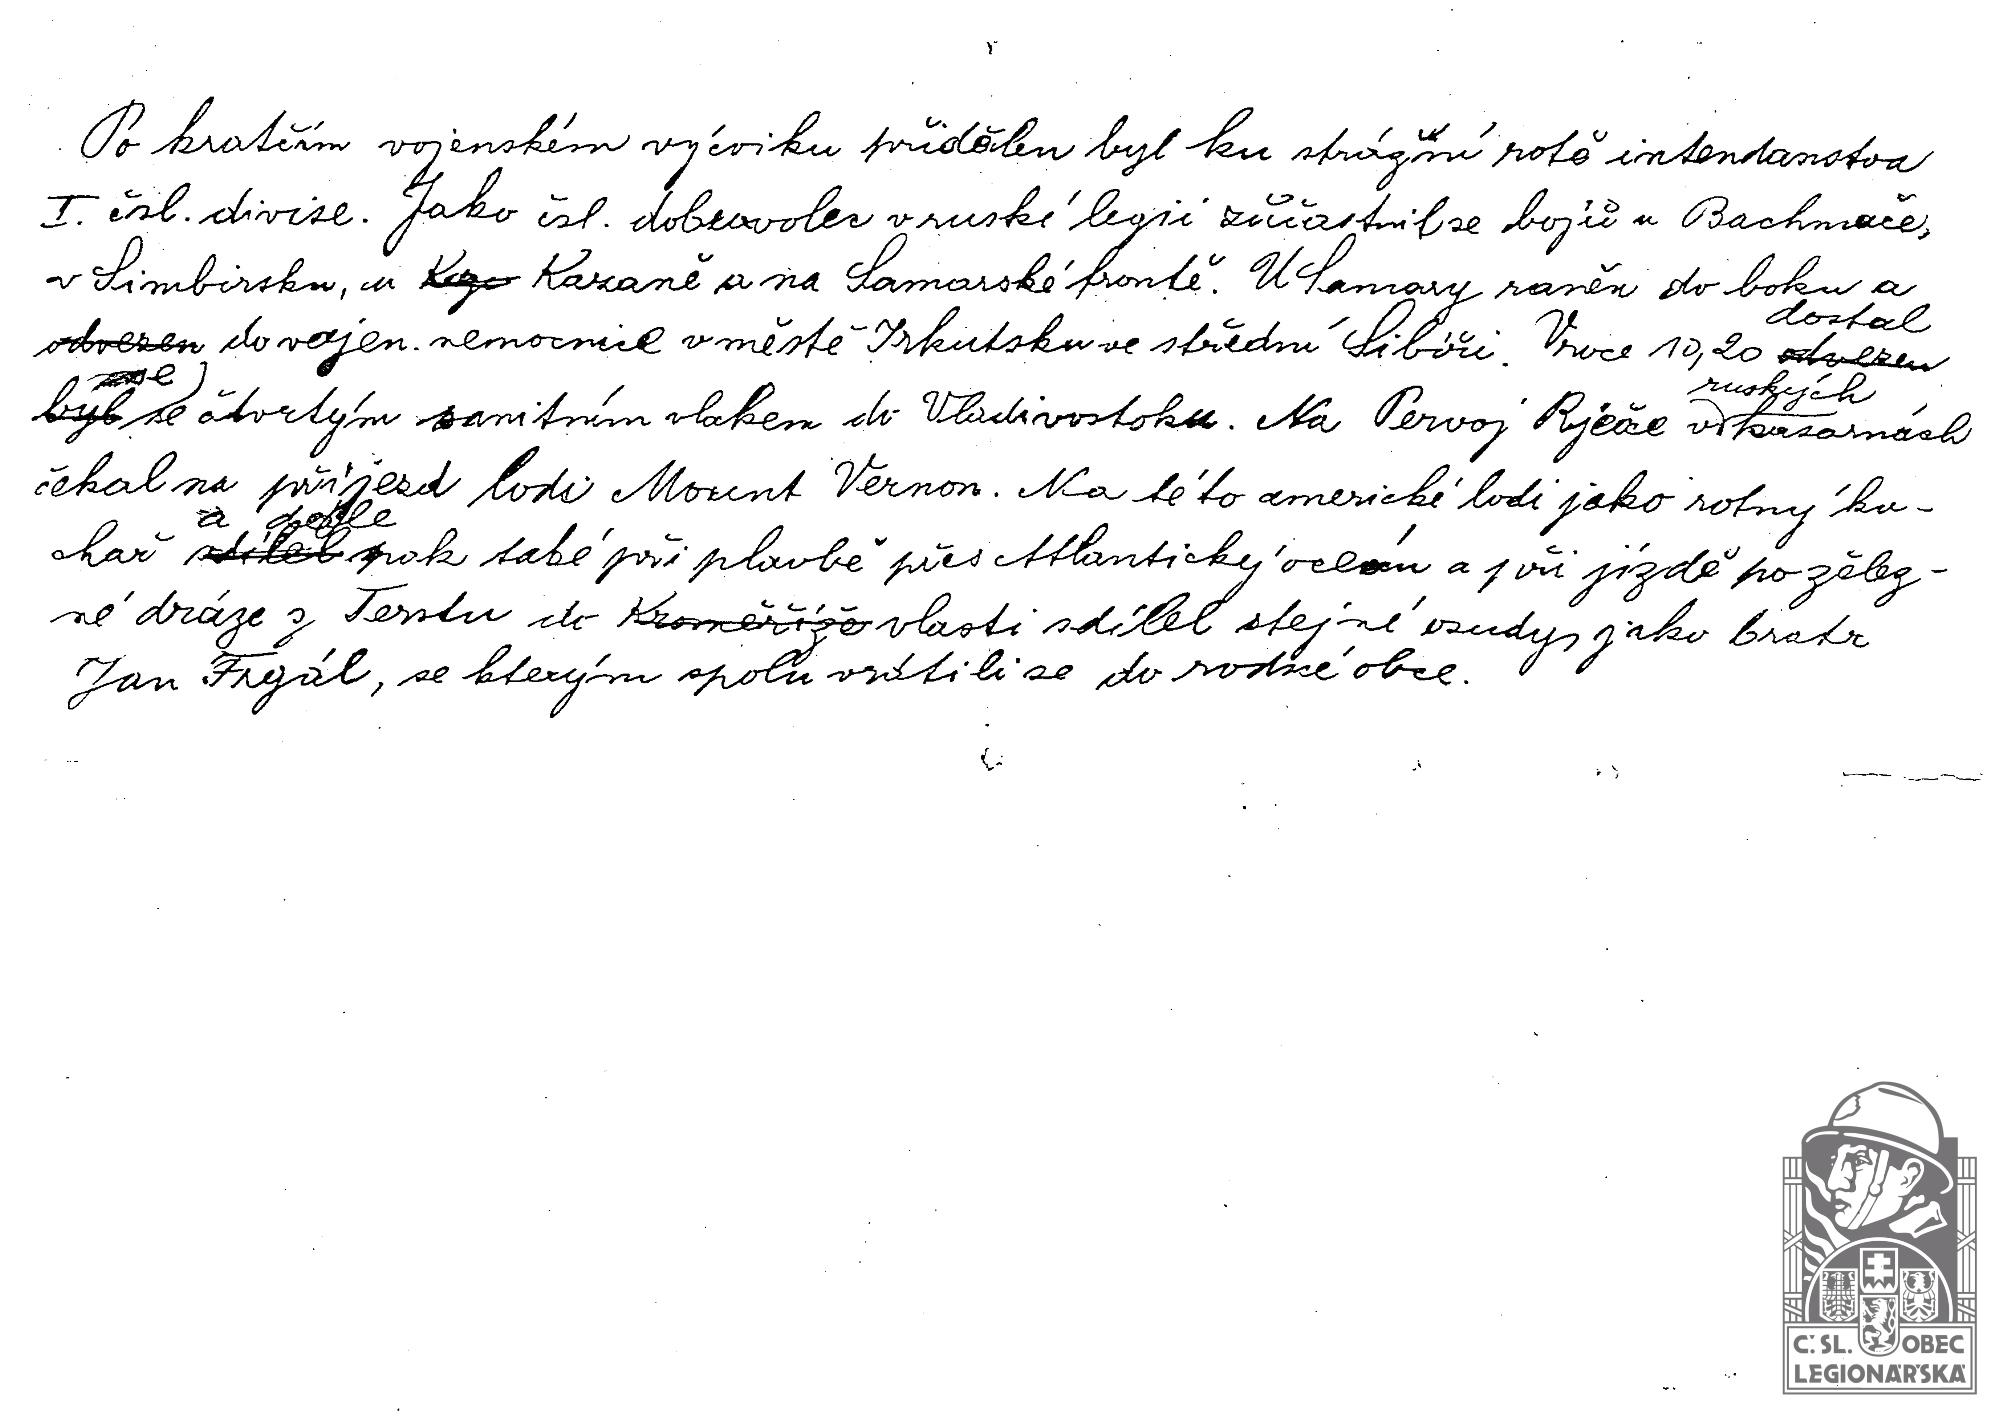 Po kratčím vojenském výcviku přidělen byl ku strážní rotě intendanstva
I. čsl. divise. Jako čsl. dobrovolec v ruské legii zůčastnil se bojů u Bachmače,
v Simbirsku, u Kaza Kazaně a na Samarské frontě. U Samary raněn do boku a
dostal
odvezen do vojen. nemocnice v městě Irkutsku ve střední Sibiři. V roce 19,20 odvezen
se
ruských
byl se čtvrtým sanitním vlakem do Vladivostoku. Na Pervoj Rječce v kasarnách
čekal na příjezd lodi Mount Vernon. Na této americké lodi jako rotný ku-
a dále
chař sdílel pak také při plavbě přes Atlantický oceán a při jízdě po želez-
né dráze z Terstu do Kroměříže vlasti sdílel stejné osudy, jako bratr
Jan Frgál, se kterým spolu vrátili se do rodné obce.
Č.SL. OBEC
LEGIONÁŘSKÁ